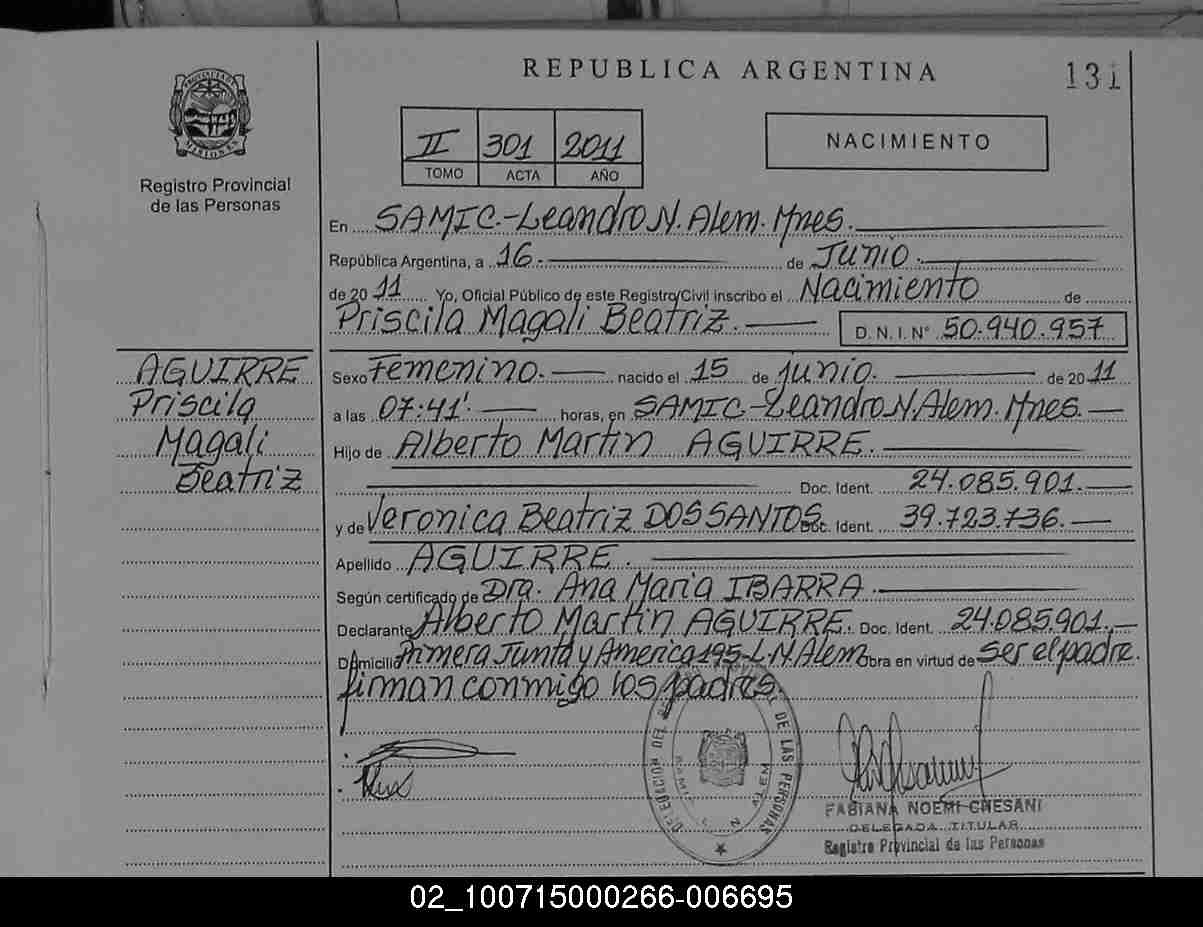 REPUBLICA ARGENTINA
131
PROVINCIA DE MISIONES
Registro Provincial
de las Personas
II 301 2011
TOMO ACTA AÑO
NACIMIENTO
En SAMIC.-Leandro N. Alem. Mnes.
República Argentina, a 16.- de Junio.
de 2011 Yo, Oficial Público de este Registro Civil inscribo el Nacimiento de
Priscila Magali Beatriz. D. N. I. N° 50.940.957
AGUIRRE
Priscila
Magali
Beatriz
Sexo Femenino. nacido el 15 de junio. de 2011
a las 07:41' horas, en SAMIC-Leandro N. Alem. Mnes.
Hijo de Alberto Martin AGUIRRE.
Doc. Ident. 24.085.901.
y de Veronica Beatriz DOS SANTOS Doc. Ident. 39.723.736.
Apellido AGUIRRE.
Según certificado de Dra. Ana Maria IBARRA.
Declarante Alberto Martin AGUIRRE. Doc. Ident. 24.085.901.
Domicilio Primera Junta y America 195-L.N.Alem Obra en virtud de ser el padre.
firman conmigo los padres.
DELEGACION DEL DE LAS PERSONAS
SAMIC L. N. ALEM
FABIANA NOEMI CHESANI
DELEGADA TITULAR
Registro Provincial de las Personas
02_100715000266-006695